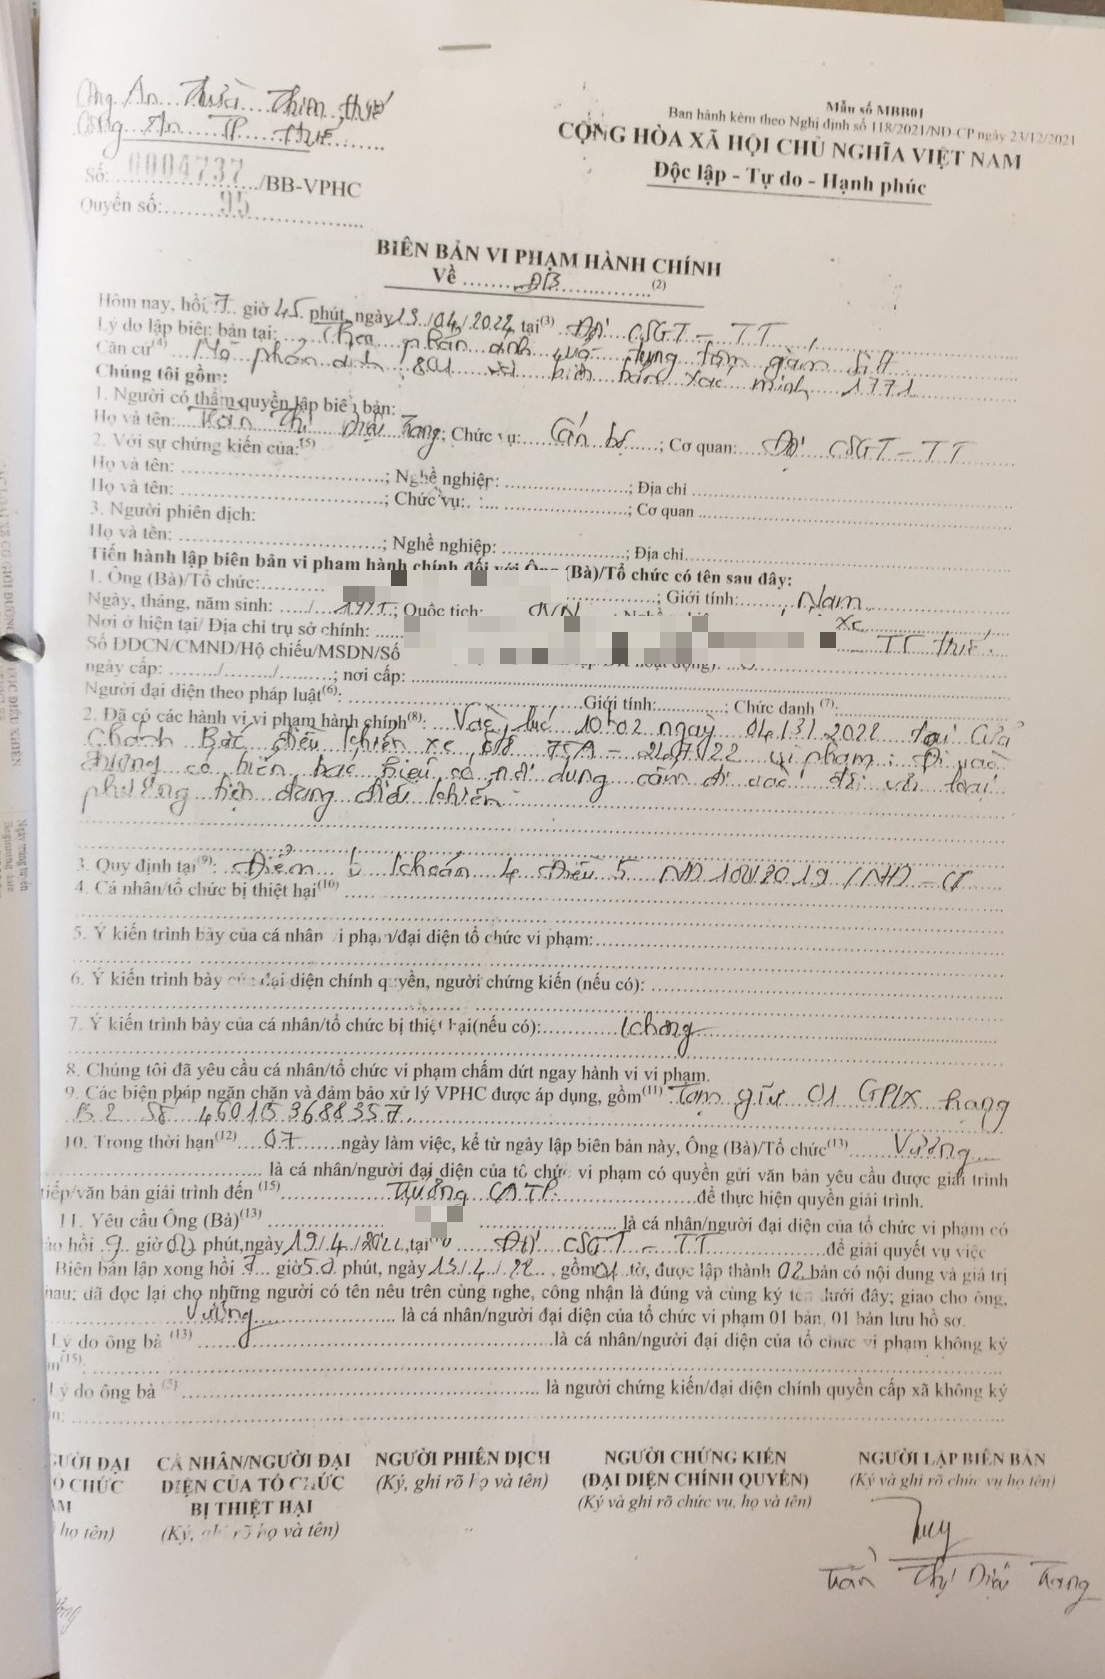 Công An Thừa Thiên Huế
Công An TP Huế
Mẫu số MBB01
Ban hành kèm theo Nghị định số 118/2021/NĐ-CP ngày 23/12/2021
CỘNG HÒA XÃ HỘI CHỦ NGHĨA VIỆT NAM
Độc lập - Tự do - Hạnh phúc
Số: 0004737 /BB-VPHC
Quyển số: 95
BIÊN BẢN VI PHẠM HÀNH CHÍNH
Về ĐB (2)
Hôm nay, hồi 7 giờ 45 phút, ngày 13/04/2022, tại(3) Đội CSGT - TT
Lý do lập biên bản tại: Theo phản ánh
Căn cứ(4) phản ánh và biên bản xác minh 1771
Chúng tôi gồm:
1. Người có thẩm quyền lập biên bản:
Họ và tên: Trần Thị Diệu Trang; Chức vụ: Cán bộ; Cơ quan: Đội CSGT - TT
2. Với sự chứng kiến của:(5)
Họ và tên: ; Nghề nghiệp: ; Địa chỉ
Họ và tên: ; Chức vụ: ; Cơ quan
3. Người phiên dịch:
Họ và tên: ; Nghề nghiệp: ; Địa chỉ
Tiến hành lập biên bản vi phạm hành chính đối với Ông (Bà)/Tổ chức có tên sau đây:
1. Ông (Bà)/Tổ chức: ; Giới tính: Nam
Ngày, tháng, năm sinh: / ; Quốc tịch: VN
Nơi ở hiện tại/ Địa chỉ trụ sở chính: xe
Số ĐDCN/CMND/Hộ chiếu/MSDN/Số TT Huế
ngày cấp: / / ; nơi cấp:
Người đại diện theo pháp luật(6): Giới tính: ; Chức danh (7):
2. Đã có các hành vi vi phạm hành chính(8): Vào lúc 10h02 ngày 04/3/2022 tại Cửa
Chánh Bắc điều khiển xe vi phạm: Đi vào
đường có biển báo hiệu có nội dung cấm đi vào đối với loại
phương tiện đang điều khiển
3. Quy định tại(9): Điểm b khoản 4 Điều 5 NĐ 100/2019/NĐ-CP
4. Cá nhân/tổ chức bị thiệt hại(10)
5. Ý kiến trình bày của cá nhân vi phạm/đại diện tổ chức vi phạm:
6. Ý kiến trình bày của đại diện chính quyền, người chứng kiến (nếu có):
7. Ý kiến trình bày của cá nhân/tổ chức bị thiệt hại(nếu có): không
8. Chúng tôi đã yêu cầu cá nhân/tổ chức vi phạm chấm dứt ngay hành vi vi phạm.
9. Các biện pháp ngăn chặn và đảm bảo xử lý VPHC được áp dụng, gồm(11) Tạm giữ 01 GPLX hạng
B2 số 460153688357
10. Trong thời hạn(12) 07 ngày làm việc, kể từ ngày lập biên bản này, Ông (Bà)/Tổ chức(13) Vương
là cá nhân/người đại diện của tổ chức vi phạm có quyền gửi văn bản yêu cầu được giải trình
tiếp/văn bản giải trình đến (15) Trưởng CATP để thực hiện quyền giải trình.
11. Yêu cầu Ông (Bà)(13) là cá nhân/người đại diện của tổ chức vi phạm có
vào hồi 9 giờ 00 phút, ngày 19/4/2022, tại Đội CSGT - TT để giải quyết vụ việc
Biên bản lập xong hồi giờ 50 phút, ngày 13/4/22, gồm 01 tờ, được lập thành 02 bản có nội dung và giá trị
nhau; đã đọc lại cho những người có tên nêu trên cùng nghe, công nhận là đúng và cùng ký tên dưới đây; giao cho ông,
Vương là cá nhân/người đại diện của tổ chức vi phạm 01 bản, 01 bản lưu hồ sơ.
Lý do ông bà (13) là cá nhân/người đại diện của tổ chức vi phạm không ký
(15):
Lý do ông bà (5) là người chứng kiến/đại diện chính quyền cấp xã không ký
NGƯỜI ĐẠI
CÁ NHÂN/NGƯỜI ĐẠI
DIỆN CỦA TỔ CHỨC
BỊ THIỆT HẠI
(Ký, ghi rõ họ và tên)
NGƯỜI PHIÊN DỊCH
(Ký, ghi rõ họ và tên)
NGƯỜI CHỨNG KIẾN
(ĐẠI DIỆN CHÍNH QUYỀN)
(Ký và ghi rõ chức vụ, họ và tên)
NGƯỜI LẬP BIÊN BẢN
(Ký và ghi rõ chức vụ họ và tên)
Trần Thị Diệu Trang